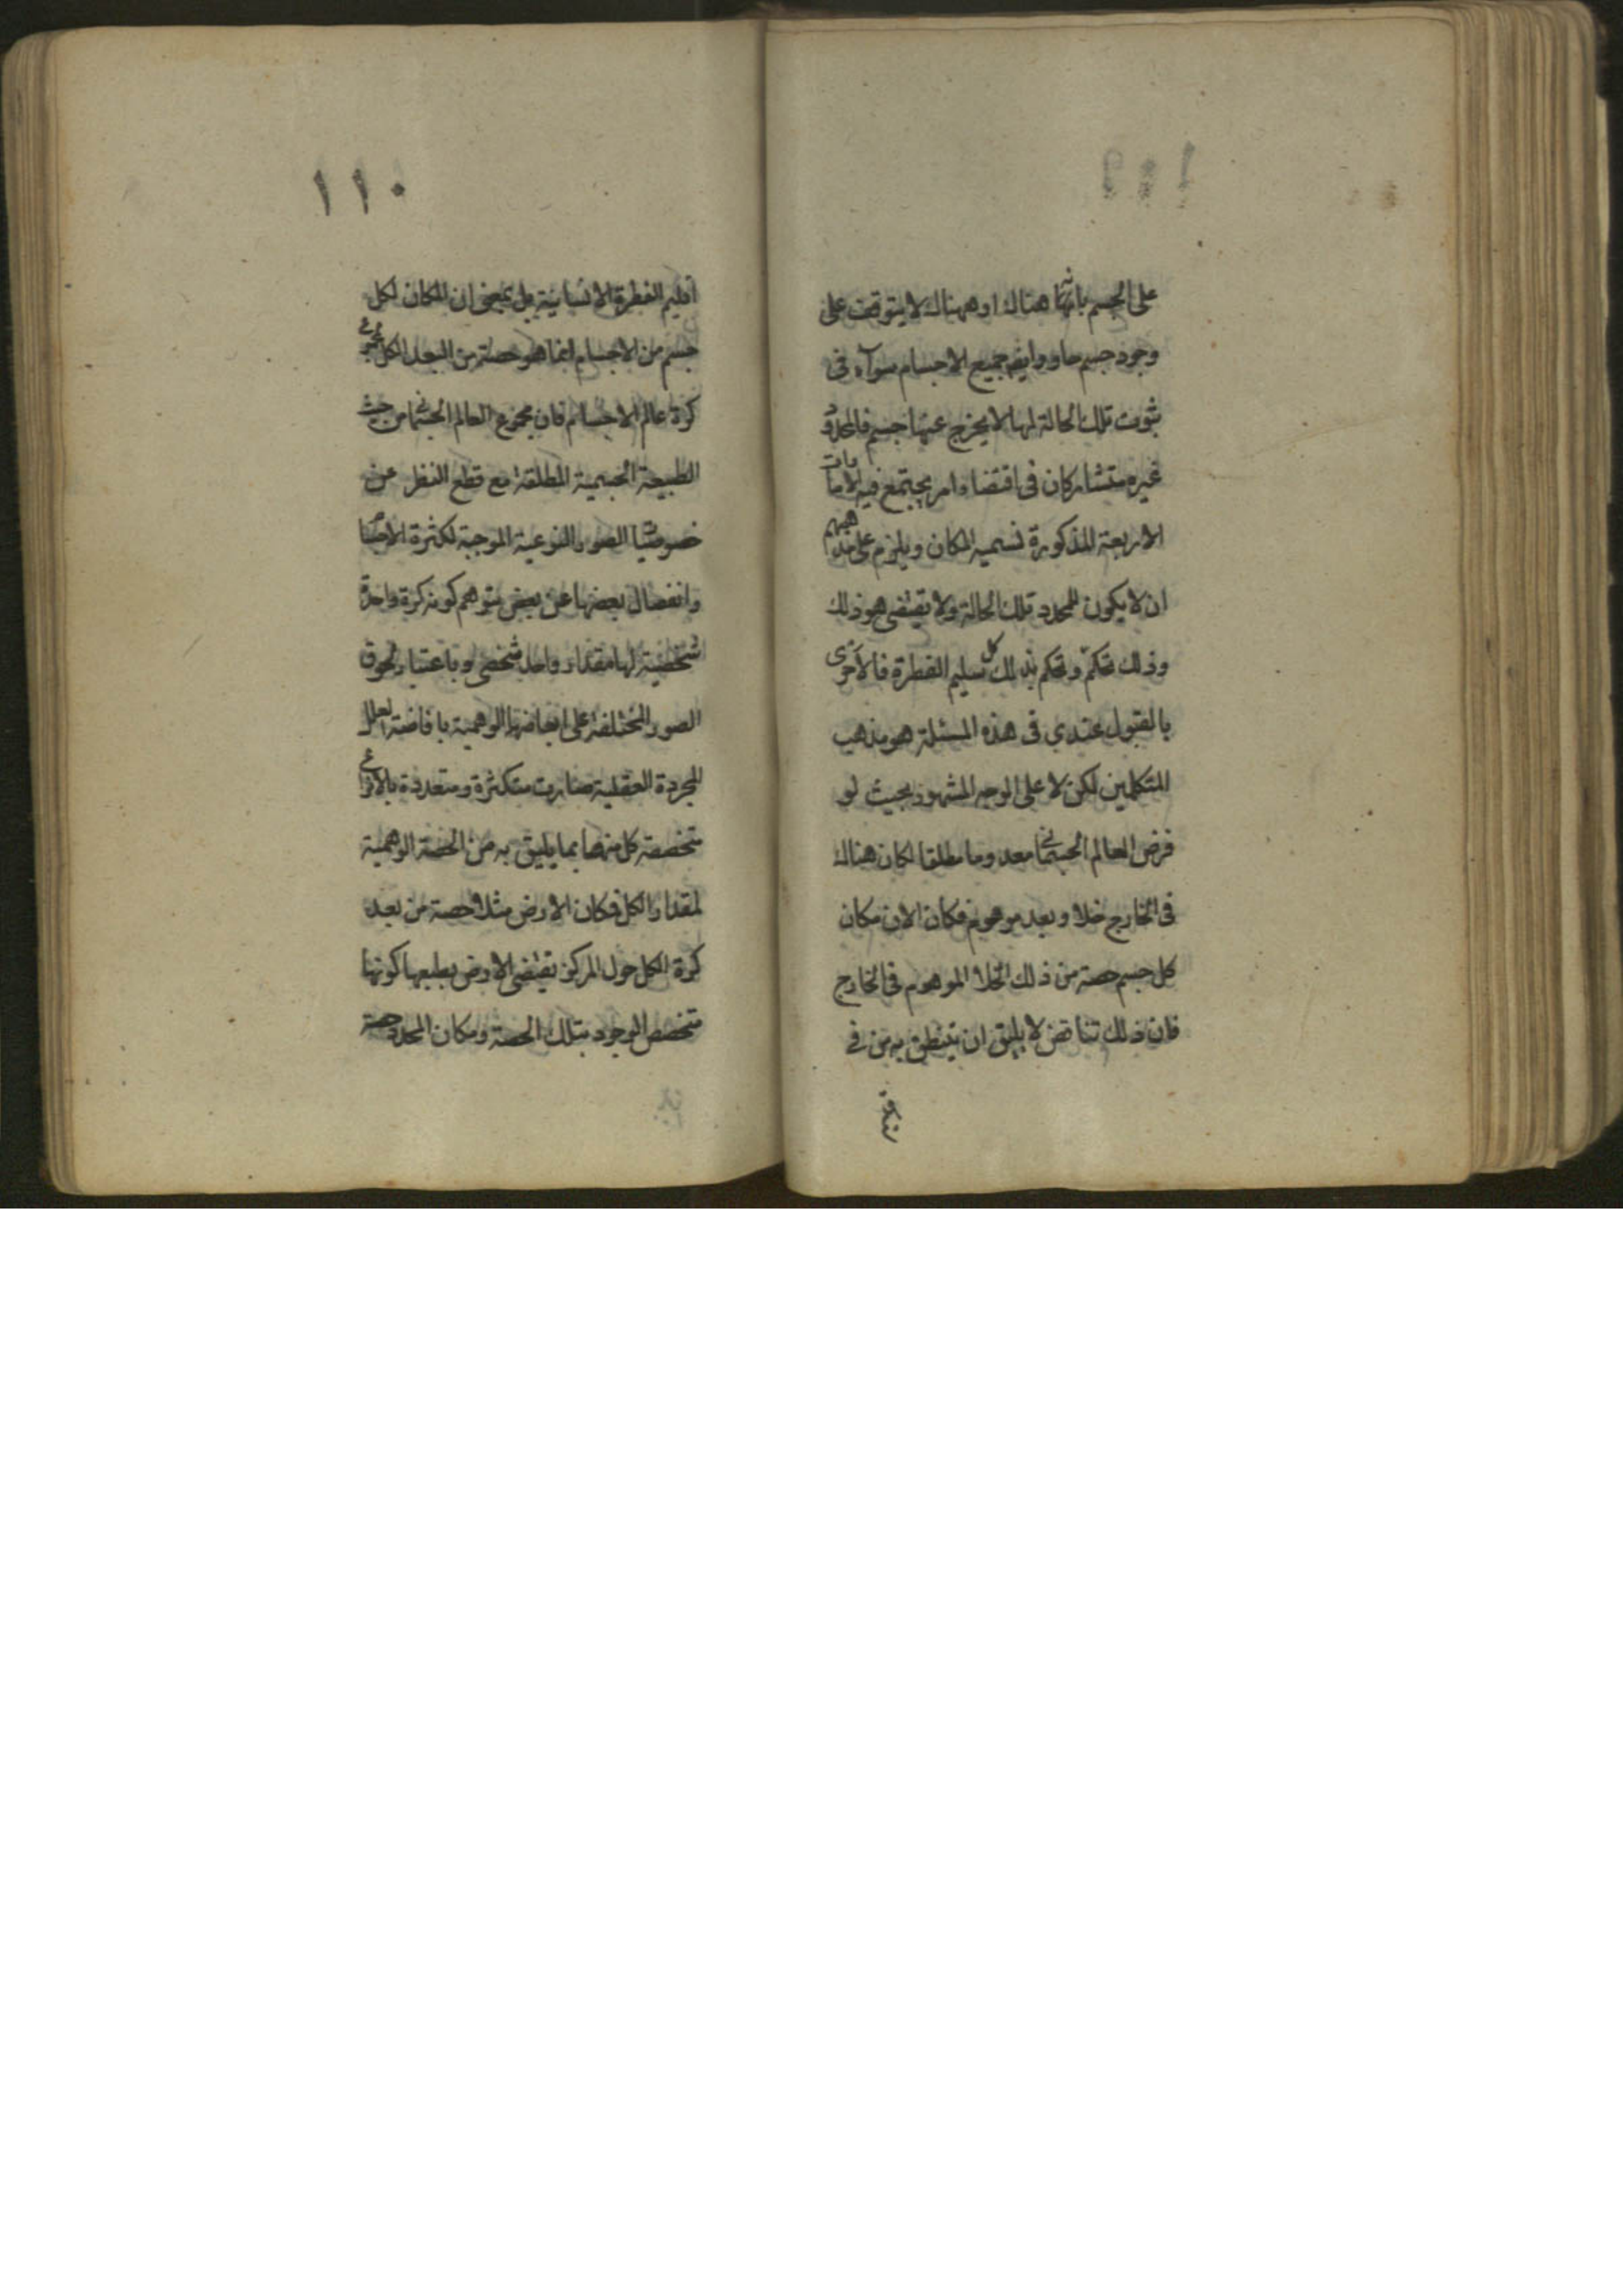 على الجسم بانها هناك او ههناك لا يتوقف على
وجود جسم حاو وايضا جميع الاجسام سواء فى
ثبوت تلك الحالة لها لا يخرج عنها جسم فالمحدد و
غيره متشاركان فى اقتضاء امر يجتمع فيه الامارات
الاربعة المذكورة نسميه المكان ويلزم على مذهبهم
ان لا يكون للمحدد تلك الحالة ولا يقتضى هو ذلك
وذلك تحكم وتحكم بذلك كل سليم الفطرة فالاحرى
بالقبول عندي فى هذه المسئلة هو مذهب
المتكلمين لكن لا على الوجه المشهور بحيث لو
فرض العالم الجسمانى معدوما مطلقا لكان هناك
فى الخارج خلا وبعد موهوم فكان الان مكان
كل جسم حصة من ذلك الخلا الموهوم فى الخارج
فان ذلك تناقض لا يليق ان يتنطق به من فى
١١٠
اقليم الفطرة الانسانية بل بمعنى ان المكان لكل
جسم من الاجسام انما هو حصة من البعد الكل
كرة عالم الاجسام فان مجموع العالم الجسمانى من حيث
الطبيعة الجسمية المطلقة مع قطع النظر عن
خصوصيات الصور النوعية الموجبة لكثرة الاجسام
وانفصال بعضها عن بعض يتوهم كونه كرة واحدة
شخصية لها مقدار واحد شخصى وباعتبار لحوق
الصور المختلفة على ابعاضها الوهمية بافاضة العلل
المجردة العقلية صارت متكثرة ومتعددة بالانواع
متخصصة كل منها بما يليق به من الحصة الوهمية
لمقدار الكل فكان الارض مثلا حصة من بعد
كرة الكل حول المركز يقتضى الارض بطبعها كونها
متخصص الوجود بتلك الحصة ومكان المحدد حصة